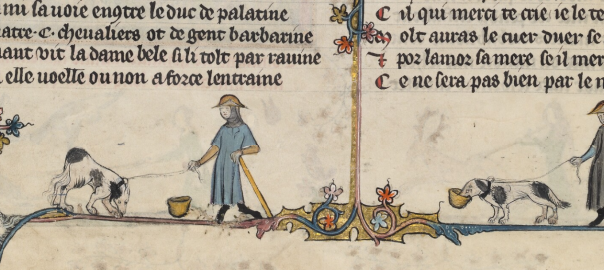 mi sa uoie enꝯtre le duc de palatine
uatre ·C· cheualiers ot de gent barbarine
uant vit la dame bele si li tolt par rauine
elle uoelle ou non a force lentraine
C il qui merci te crie ie le te
M olt auras le cuer duer se
⁊ por lamor sa mere se il mer
C e ne sera pas bien par le